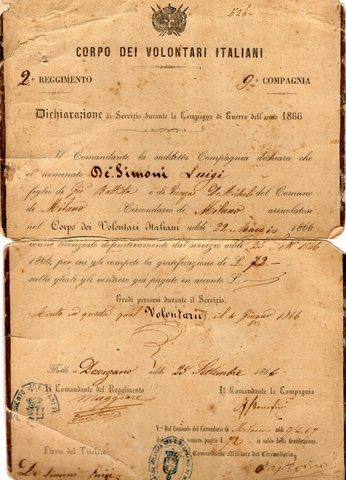 526-
CORPO DEI VOLONTARI ITALIANI
2º REGGIMENTO 9ª COMPAGNIA
Dichiarazione di Servizio durante la Campagna di Guerra dell'anno 1866
Il Comandante la suddetta Compagnia dichiara che
il nominato De Simoni Luigi
figlio di Battista e di De Michele del Comune
di Milano Circondario di Milano arruolatosi
nel Corpo dei Volontari Italiani addì 22 Maggio 1866
venne licenziato definitivamente dal servizio addì 25 1866
1866, per cui gli compete la gratificazione di L. 72 —
sulla quale gli vennero già pagate in acconto L.
Gradi percorsi durante il Servizio.
in qual Volontario il 4 Giugno 1866
Fatto a addì 25 Settembre 1866
Il Comandante del Reggimento Il Comandante la Compagnia
Maggiore
V.º Dal Comando del Circondario di Milano addì 67
72 a saldo della Gratificazione.
Firma del Titolare Il Comandante Militare del Circondario
De Simoni Luigi